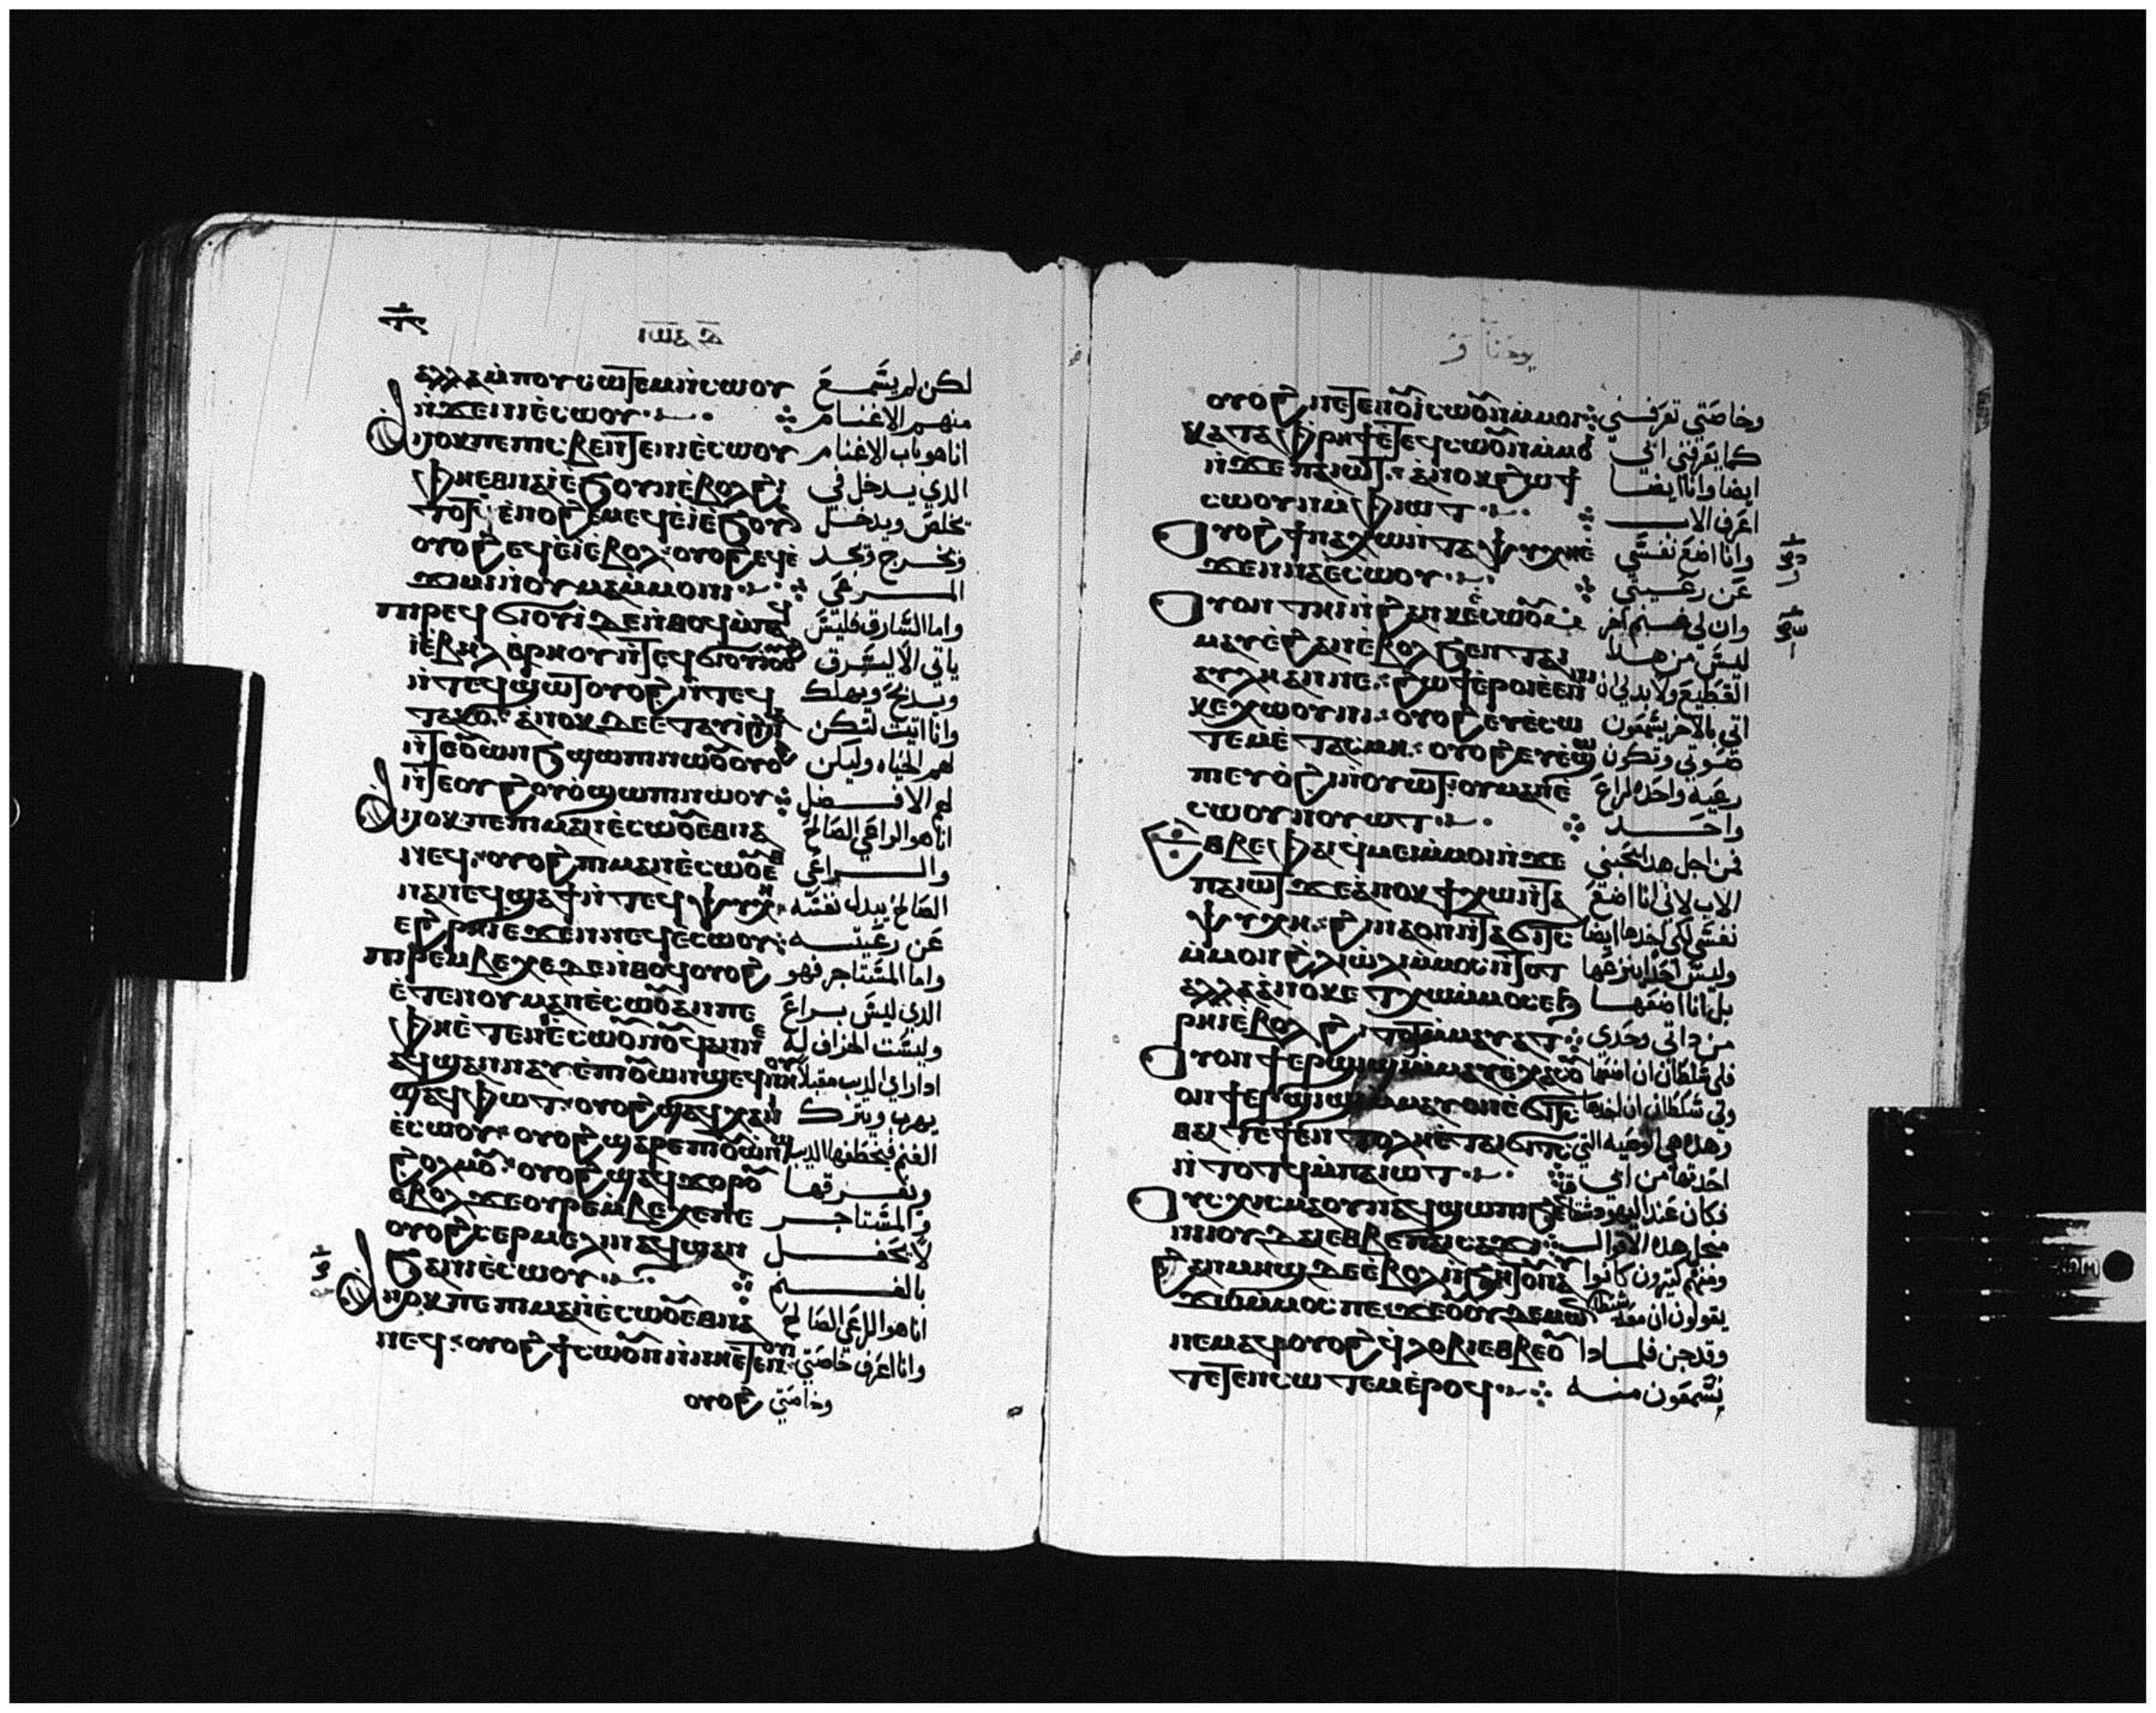 ⲓⲱⲁ
ⲁⲗⲗⲁ ⲙ̀ⲡⲟⲩⲥⲱⲧⲉⲙ ⲛ̀ⲥⲱⲟⲩ لكن لم يسمع
ⲛ̀ϫⲉ ⲛⲓⲉ̀ⲥⲱⲟⲩ منهم الاغنام
ⲁⲛⲟⲕ ⲡⲉ ⲡⲓⲥⲃⲉ ⲛ̀ⲧⲉ ⲛⲓⲉ̀ⲥⲱⲟⲩ انا هو باب الاغنام
ⲫⲏ ⲉⲑⲛⲁⲓ̀ ⲉ̀ϧⲟⲩⲛ ⲉ̀ⲃⲟⲗ ϩⲓ الذي يدخل في
ⲧⲟⲧ ⲉ̀ⲛⲟϩⲉⲙ ⲉϥⲉ̀ⲓ̀ ⲉ̀ϧⲟⲩⲛ يخلص ويدخل
ⲟⲩⲟϩ ⲉϥⲉ̀ⲓ̀ ⲉ̀ⲃⲟⲗ ⲟⲩⲟϩ ⲉϥⲉ̀ ويخرج ويجد
ϫⲓⲙⲓ ⲛ̀ⲟⲩⲙⲁⲙ̀ⲙⲟⲛⲓ المرعى
ⲡⲓⲣⲉϥϭⲓⲟⲩⲓ̀ ⲇⲉ ⲛ̀ⲑⲟϥ ⲙ̀ⲡⲁϥ واما السارق فليس
ⲓ̀ ⲉ̀ⲃⲏⲗ ⲁ̀ⲣⲏⲟⲩ ⲛ̀ⲧⲉϥϭⲓⲟⲩⲓ̀ ⲟⲩⲟϩ ياتي الا ليسرق
ⲛ̀ⲧⲉϥϣⲱⲧ ⲟⲩⲟϩ ⲛ̀ⲧⲉϥ ويدبح ويهلك
ⲧⲁⲕⲟ ⲁ̀ⲛⲟⲕ ⲇⲉ ⲉⲧⲁⲓⲓ̀ ϩⲓⲛⲁ وانا اتيت لتكن
ⲛ̀ⲧⲉ ⲟⲩⲱⲛϧ ϣⲱⲡⲓ ⲛⲱⲟⲩ ⲟⲩⲟϩ لهم الحياه وليكن
ⲛ̀ⲧⲉ ⲟⲩϩⲟⲩⲟ̀ ϣⲱⲡⲓ ⲛⲱⲟⲩ لهم الافضل
ⲁⲛⲟⲕ ⲡⲉ ⲡⲓⲙⲁⲛⲉ̀ⲥⲱⲟⲩ ⲉⲑⲛⲁ انا هو الراعي الصالح
ⲛⲉϥ ⲟⲩⲟϩ ⲡⲓⲙⲁⲛⲉ̀ⲥⲱⲟⲩ ⲉⲑ والراعي
ⲛⲁⲛⲉϥ ϣⲁϥϯ ⲛ̀ⲧⲉϥⲯⲩⲭⲏ الصالح يبدل نفسه
ⲉϩⲣⲏⲓ ⲉϫⲉⲛ ⲛⲉϥⲉ̀ⲥⲱⲟⲩ عن رعيته
ⲡⲓⲣⲉⲙⲃⲉⲭⲉ ⲇⲉ ⲛ̀ⲑⲟϥ ⲟⲩⲟϩ واما المستاجر فهو
ⲉ̀ⲧⲉ ⲛⲟⲩⲙⲁⲛⲉ̀ⲥⲱⲟⲩ ⲁⲛ ⲡⲉ الذي ليس براع
ⲫⲏ ⲉ̀ⲧⲉ ⲛⲉ̀ⲥⲱⲟⲩ ⲛⲟⲩϥ ⲁⲛ ⲛⲉ وليست الخراف له
ⲁϥϣⲁⲛⲛⲁⲩ ⲉ̀ⲡⲓⲟⲩⲱⲛϣ ⲉϥⲛⲏⲟⲩ اذا راي الديب مقبلا
ϣⲁϥⲫⲱⲧ ⲟⲩⲟϩ ϣⲁϥⲭⲁ ⲛⲓ يهرب ويترك
ⲉ̀ⲥⲱⲟⲩ ⲟⲩⲟϩ ϣⲁⲣⲉ ⲡⲓⲟⲩⲱⲛϣ الغنم فيخطفها الديب
ϩⲟⲗⲙⲟⲩ ⲟⲩⲟϩ ϣⲁϥϫⲟⲣⲟⲩ ويفرقها
ⲉⲃⲟⲗ ϫⲉ ⲟⲩⲣⲉⲙⲃⲉⲭⲉ ⲡⲉ والمستاجر
ⲟⲩⲟϩ ⲥⲉⲣⲙⲉⲗⲓⲛ ⲁϥ ϣⲁⲛ لا يحفل
ϧⲁ ⲛⲓⲉ̀ⲥⲱⲟⲩ بالغنم
ⲁⲛⲟⲕ ⲡⲉ ⲡⲓⲙⲁⲛⲉ̀ⲥⲱⲟⲩ ⲉⲑⲛⲁ انا هو الراعي الصالح
ⲛⲉϥ ⲟⲩⲟϩ ϯⲥⲱⲟⲩⲛ ⲛ̀ⲛⲏ ⲉ̀ⲧⲉ ⲛⲟⲩⲓ وانا اعرف خاصتي
ⲟⲩⲟϩ وخاصتي
يوحنا
ⲟⲩⲟϩ ⲛⲉⲧⲉ ⲛⲟⲩⲓ̀ ⲥⲱⲟⲩⲛ ⲙ̀ⲙⲟⲓ وخاصتي تعرفني
ⲕⲁⲧⲁ ⲫⲣⲏϯ ⲉ̀ⲧⲉϥⲥⲱⲟⲩⲛ ⲙ̀ⲙⲟⲓ كما يعرفني ابي
ⲛ̀ϫⲉ ⲡⲁⲓⲱⲧ ⲁ̀ⲛⲟⲕ ϩⲱ ϯ ايضا وانا ايضا
ⲥⲱⲟⲩⲛ ⲙ̀ⲫⲓⲱⲧ اعرف الاب
ⲟⲩⲟϩ ϯⲛⲁⲭⲱ ⲛ̀ⲧⲁⲯⲩⲭⲏ ⲉ̀ وانا اضع نفسي
ϫⲉⲛ ⲛⲁⲉ̀ⲥⲱⲟⲩ عن رعيتي
ⲟⲩⲟⲛ ⲧⲏⲓ ⲛ̀ϩⲁⲛⲕⲉⲉ̀ⲥⲱⲟⲩ وان لي غنم اخر
ⲙⲁⲩ ⲉ̀ϩⲁⲛⲉ̀ⲃⲟⲗ ϧⲉⲛ ⲧⲁⲓ ليس من هدا
ⲁⲩⲗⲏ ⲁⲛ ⲛⲉ ϩⲱϯ ⲉ̀ⲣⲟⲓ ⲉ̀ⲉⲛ ⲛⲓ القطيع ولا بد لي ان
ⲕⲉⲭⲱⲟⲩⲛⲓ ⲟⲩⲟϩ ⲉⲩⲉ̀ⲥⲱ اتي بالاخر يسمعون
ⲧⲉⲙ ⲉ̀ⲧⲁⲥⲙⲏ ⲟⲩⲟϩ ⲉⲩⲉ̀ϣⲱ صوتي وتكون
ⲡⲓ ⲉⲩⲟ̀ϩⲓ ⲛ̀ⲟⲩⲱⲧ ⲟⲩⲙⲁⲛⲉ رعيه واحده لراع
ⲥⲱⲟⲩ ⲛⲟⲩⲱⲧ واحد
ⲉⲑⲃⲉ ⲫⲁⲓ ϥⲙⲉⲓ ⲙ̀ⲙⲟⲓ ⲛ̀ϫⲉ فمن اجل هدا يحبني
ⲡⲁⲓⲱⲧ ϫⲉ ⲁ̀ⲛⲟⲕ ϯⲭⲱ ⲛ̀ⲧⲁ الاب لاني انا اضع
ⲯⲩⲭⲏ ϩⲓⲛⲁ ⲟⲛ ⲛ̀ⲧⲁϭⲓⲧⲥ نفسي لكي اخدها ايضا
ⲙ̀ⲙⲟⲛ ϩⲗⲓ ⲱ̀ⲗⲓ ⲙ̀ⲙⲟⲥ ⲛ̀ⲧⲟⲧ وليس احد ينزعها
ⲁⲗⲗⲁ ⲁ̀ⲛⲟⲕ ⲉϯⲭⲱ ⲙ̀ⲙⲟⲥ ⲉϧ بل انا اضعها
ⲣⲏⲓ ⲉ̀ⲃⲟⲗ ϩⲓⲧⲟⲧ ⲙ̀ⲙⲁⲩⲁⲧ من داتي وحدي
ⲟⲩⲟⲛ ϯⲉⲣϣⲓϣⲓ ⲙ̀ⲙⲁⲩ ⲉ̀ⲭⲁⲥ فلي سلطان ان اضعها
ⲟⲛ ϯⲉⲣϣⲓϣⲓ ⲙ̀ⲙⲁⲩ ⲟⲛ ⲉ̀ϭⲓⲧⲥ ولي سلطان ان اخدها
ⲑⲁⲓ ⲧⲉ ϯⲉⲛⲧⲟⲗⲏ ⲉⲧⲁⲓϭⲓⲧⲥ وهده هي الوصيه التي
ⲛ̀ⲧⲟⲧϥ ⲙ̀ⲡⲁⲓⲱⲧ اخدتها من ابي
ⲟⲩⲥⲭⲓⲥⲙⲁ ⲟⲩⲛ ⲁϥϣⲱⲡⲓ ϧⲉⲛ فكان عند اليهود
ⲛⲓⲓⲟⲩⲇⲁⲓ ⲉⲑⲃⲉ ⲛⲁⲓⲥⲁϫⲓ من اجل هده الاقوال
ϩⲁⲛⲙⲏϣ ⲇⲉ ⲉ̀ⲃⲟⲗ ⲛ̀ϧⲏⲧⲟⲩ ⲛⲁⲩ ومنهم كثيرون كانوا
ϫⲱ ⲙ̀ⲙⲟⲥ ⲡⲉ ϫⲉ ⲟⲩⲟⲩⲇⲉⲙⲱⲛ يقولون ان معه شيطان
ⲛⲉⲙⲁϥ ⲟⲩⲟϩ ϥⲗⲟⲃⲓ ⲉⲑⲃⲉⲟⲩ وقد جن فلمادا
ⲧⲉⲧⲉⲛⲥⲱⲧⲉⲙ ⲉ̀ⲣⲟϥ تسمعون منه